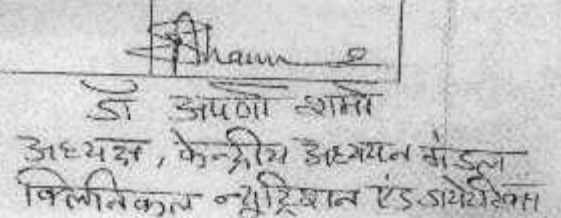 डॉ अपर्णा शर्मा
अध्यक्ष, केन्द्रीय अध्ययन मंडल
क्लिनिकल न्यूट्रिशन एंड डायेटेटिक्स